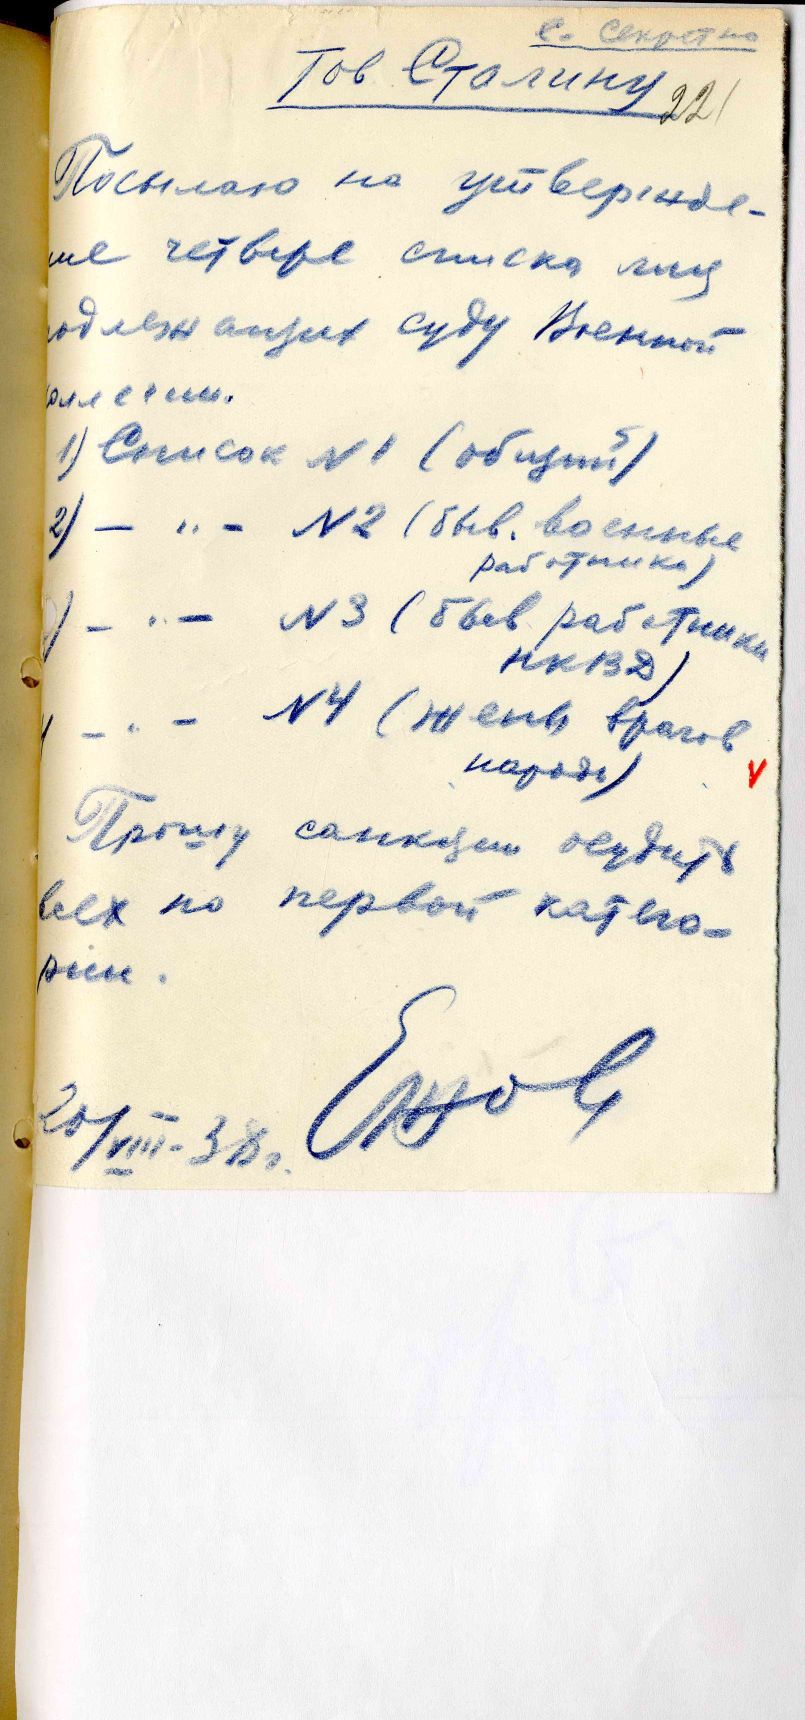 С. Секретно
Тов Сталину
221
Посылаю на утвержде-
ние четыре списка лиц
подлежащих суду Военной
коллегии.
1) Список №1 (общий)
2) — " — №2 (быв. военные
работники)
) — " — №3 (быв. работники
НКВД)
— " — №4 (жены врагов
народа)
V
Прошу санкции осудить
всех по первой катего-
рии.
Ежов
20/VIII-38г.